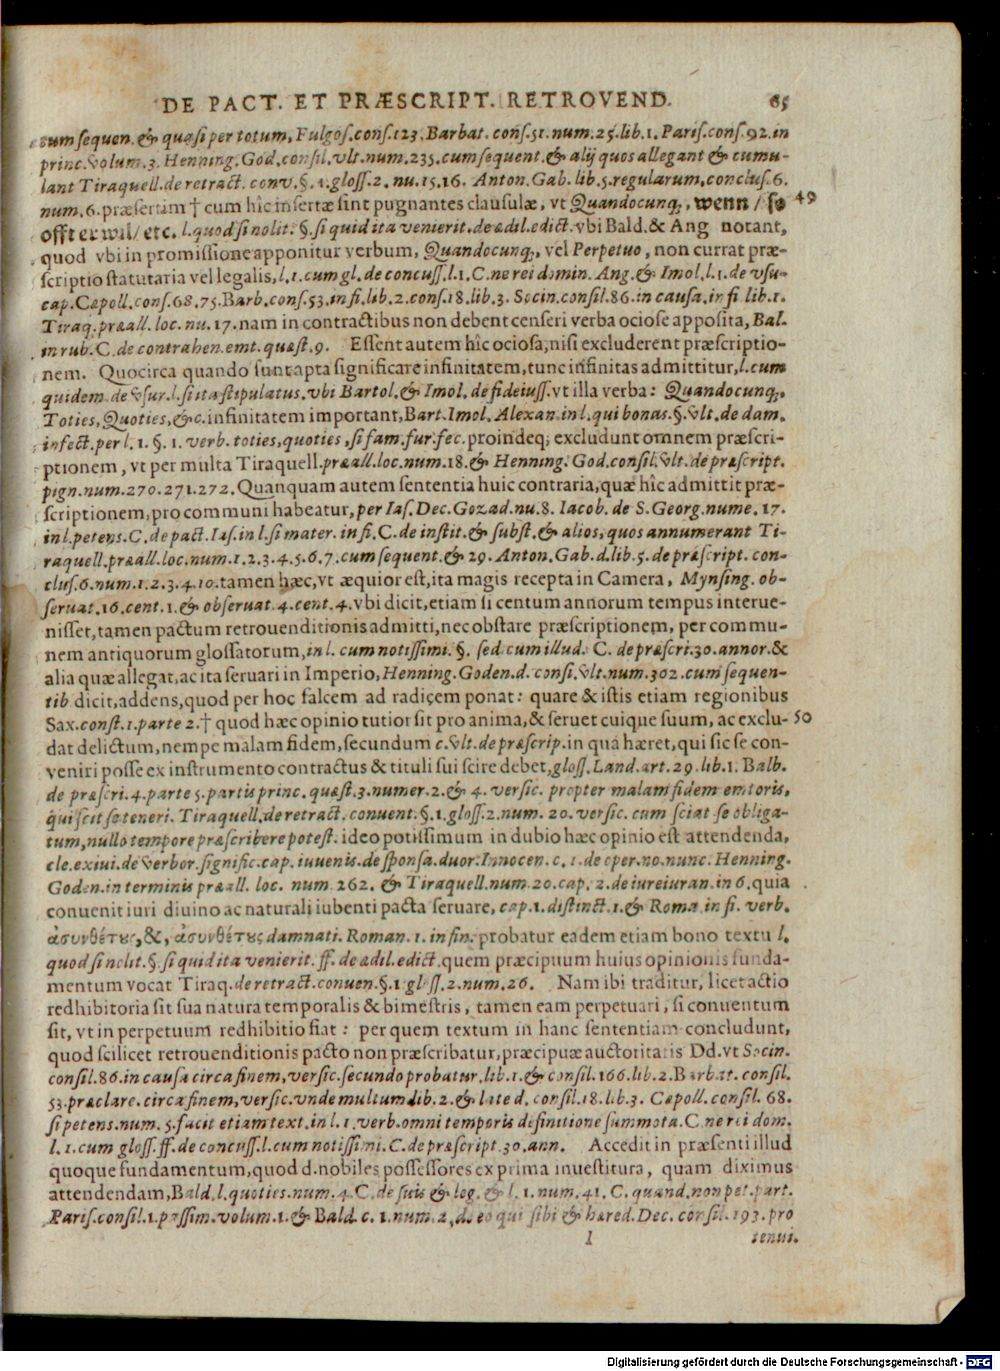 DE PACT. ET PRÆSCRIPT. RETROVEND. 65
cum sequen. & quasi per totum, Fulgos. cons. 123. Barbat. cons. 51. num. 25. lib. 1. Paris. cons. 92. in
princ. volum. 3. Henning. God. consil. vlt. num. 235. cum sequent. & alij quos allegant & cumu-
lant Tiraquell. de retract. conv. §. 1. gloss. 2. nu. 15. 16. Anton. Gab. lib. 5. regularum, conclus. 6.
num. 6. præsertim † cum hîc insertæ sint pugnantes clausulæ, vt Quandocunq;, wenn / so 49
offt er wil / etc. l. quod si nolit. §. si quid ita venierit. de ædil. edict. vbi Bald. & Ang notant,
quod vbi in promissione apponitur verbum, Quandocunq;, vel Perpetuo, non currat præ-
scriptio statutaria vel legalis, l. 1. cum gl. de concuss. l. 1. C. ne rei domin. Ang. & Imol. l. 1. de vsu-
cap. Cepoll. cons. 68. 75. Barb. cons. 53. in fi. lib. 2. cons. 18. lib. 3. Socin. consil. 86. in causa. in fi lib. 1.
Tiraq. præall. loc. nu. 17. nam in contractibus non debent censeri verba ociose apposita, Bal.
in rub. C. de contrahen. emt. quæst. 9. Essent autem hîc ociosa, nisi excluderent præscriptio-
nem. Quocirca quando sunt apta significare infinitatem, tunc infinitas admittitur, l. cum
quidem. de vsur. l. si ita stipulatus. vbi Bartol. & Imol. de fideiuss. vt illa verba: Quandocunq;,
Toties, Quoties, &c. infinitatem important, Bart. Imol. Alexan. in l. qui bonas. §. vlt. de dam.
infect. per l. 1. §. 1. verb. toties, quoties, si fam. fur. fec. proindeq; excludunt omnem præscri-
ptionem, vt per multa Tiraquell. præall. loc. num. 18. & Henning. God. consil. vlt. de præscript.
pign. num. 270. 271. 272. Quanquam autem sententia huic contraria, quæ hîc admittit præ-
scriptionem, pro communi habeatur, per Ias. Dec. Gozad. nu. 8. Iacob. de S. Georg. nume. 17.
in l. petens. C. de pact. Ias. in l. si mater. in fi. C. de instit. & subst. & alios, quos annumerant Ti-
raquell. præall. loc. num. 1. 2. 3. 4. 5. 6. 7. cum sequent. & 29. Anton. Gab. d. lib. 5. de præscript. con-
clus. 6. num. 1. 2. 3. 4. 10. tamen hæc, vt æquior est, ita magis recepta in Camera, Mynsing. ob-
seruat. 16. cent. 1. & obseruat. 4. cent. 4. vbi dicit, etiam si centum annorum tempus interue-
nisset, tamen pactum retrouenditionis admitti, nec obstare præscriptionem, per commu-
nem antiquorum glossatorum, in l. cum notissimi. §. sed cum illud. C. de præscri. 30. annor. &
alia quæ allegat, ac ita seruari in Imperio, Henning. Goden. d. consi. vlt. num. 302. cum sequen-
tib dicit, addens, quod per hoc falcem ad radicem ponat: quare & istis etiam regionibus
Sax. const. 1. parte 2. † quod hæc opinio tutior sit pro anima, & seruet cuique suum, ac exclu- 50
dat delictum, nempe malam fidem, secundum c. vlt. de præscrip. in qua hæret, qui sic se con-
veniri posse ex instrumento contractus & tituli sui scire debet, gloss. Land. art. 29. lib. 1. Balb.
de præscri. 4. parte 5. partis princ. quæst. 3. numer. 2. & 4. versic. propter malam fidem emtoris,
qui scit se teneri. Tiraquell. de retract. conuent. §. 1. gloss. 2. num. 20. versic. cum sciat se obliga-
tum, nullo tempore præscribere potest. ideo potissimum in dubio hæc opinio est attendenda,
cle. exiui. de verbor. signific. cap. iuuenis. de sponsa. duor. Innocen. c. 1. de oper. no. nunc. Henning.
Goden. in terminis præall. loc. num. 262. & Tiraquell. num. 20. cap. 2. de iureiuran. in 6. quia
conuenit iuri diuino ac naturali iubenti pacta seruare, cap. 1. distinct. 1. & Roma. in fi. verb.
ἀσυνθέτȣς, &, ἀσυνθέτȣς damnati. Roman. 1. in fin. probatur eadem etiam bono textu l.
quod si nolit. §. si quid ita venierit. ff. de ædil. edict. quem præcipuum huius opinionis funda-
mentum vocat Tiraq. de retract. conuen. §. 1 gloss. 2. num. 26. Nam ibi traditur, licet actio
redhibitoria sit sua natura temporalis & bimestris, tamen eam perpetuari, si conuentum
sit, vt in perpetuum redhibitio fiat: per quem textum in hanc sententiam concludunt,
quod scilicet retrouenditionis pacto non præscribatur, præcipuæ auctoritatis Dd. vt Socin.
consil. 86. in causa circa finem, versic. secundo probatur. lib. 1. & consil. 166. lib. 2. Barbat. consil.
53. præclare. circa finem, versic. vnde multum. lib. 2. & late d. consil. 18. lib. 3. Cepoll. consil. 68.
si petens. num. 5. facit etiam text. in l. 1. verb. omni temporis definitione summota. C. ne rei dom.
l. 1. cum gloss. ff. de concuss. l. cum notissimi. C. de præscript. 30. ann. Accedit in præsenti illud
quoque fundamentum, quod d. nobiles possessores ex prima inuestitura, quam diximus
attendendam, Bald. l. quoties. num. 4. C. de suis & leg. & l. 1. num. 41. C. quand. non pet. part.
Paris. consil. 1. passim. volum. 1. & Bald. c. 1. num. 2. d. eo qui sibi & hæred. Dec. consil. 193. pro
l tenui.
Digitalisierung gefördert durch die Deutsche Forschungsgemeinschaft - DFG